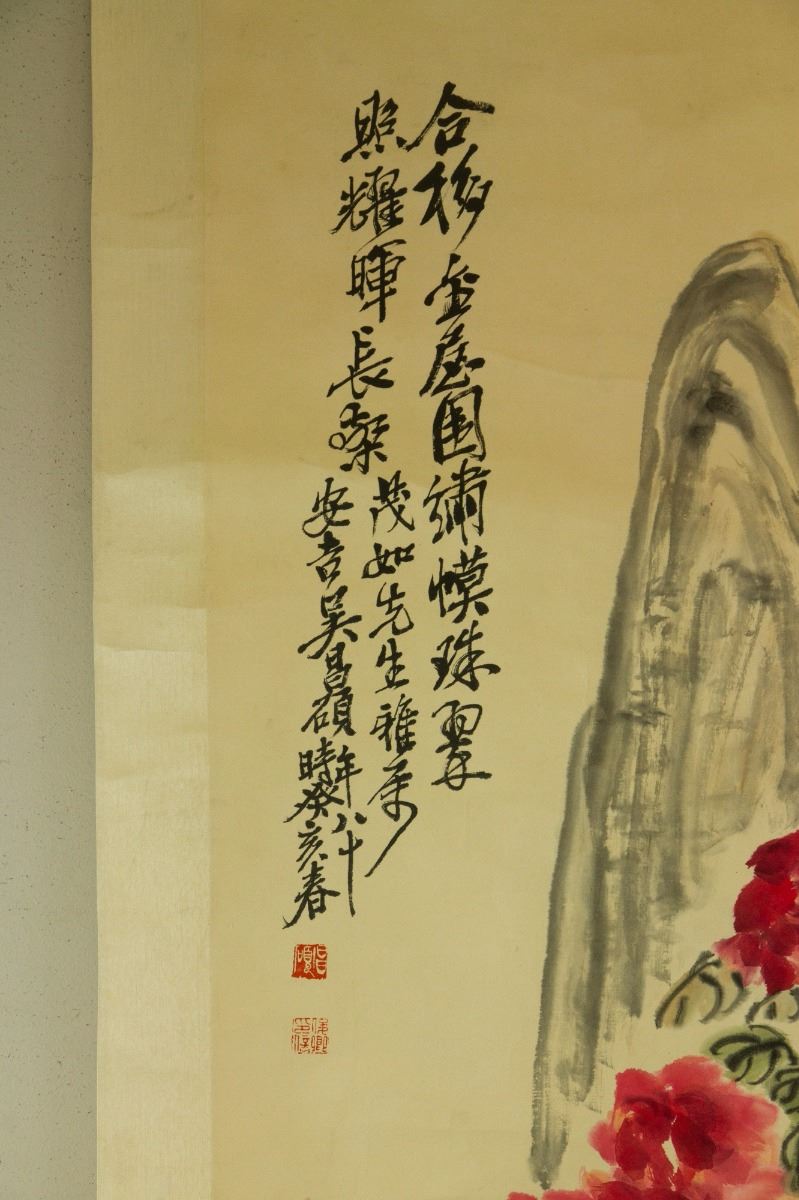 合移金屋围繡幙珠翠
照耀暉長粲
茂如先生雅属
安吉吴昌碩年八十
時癸亥春
昌碩